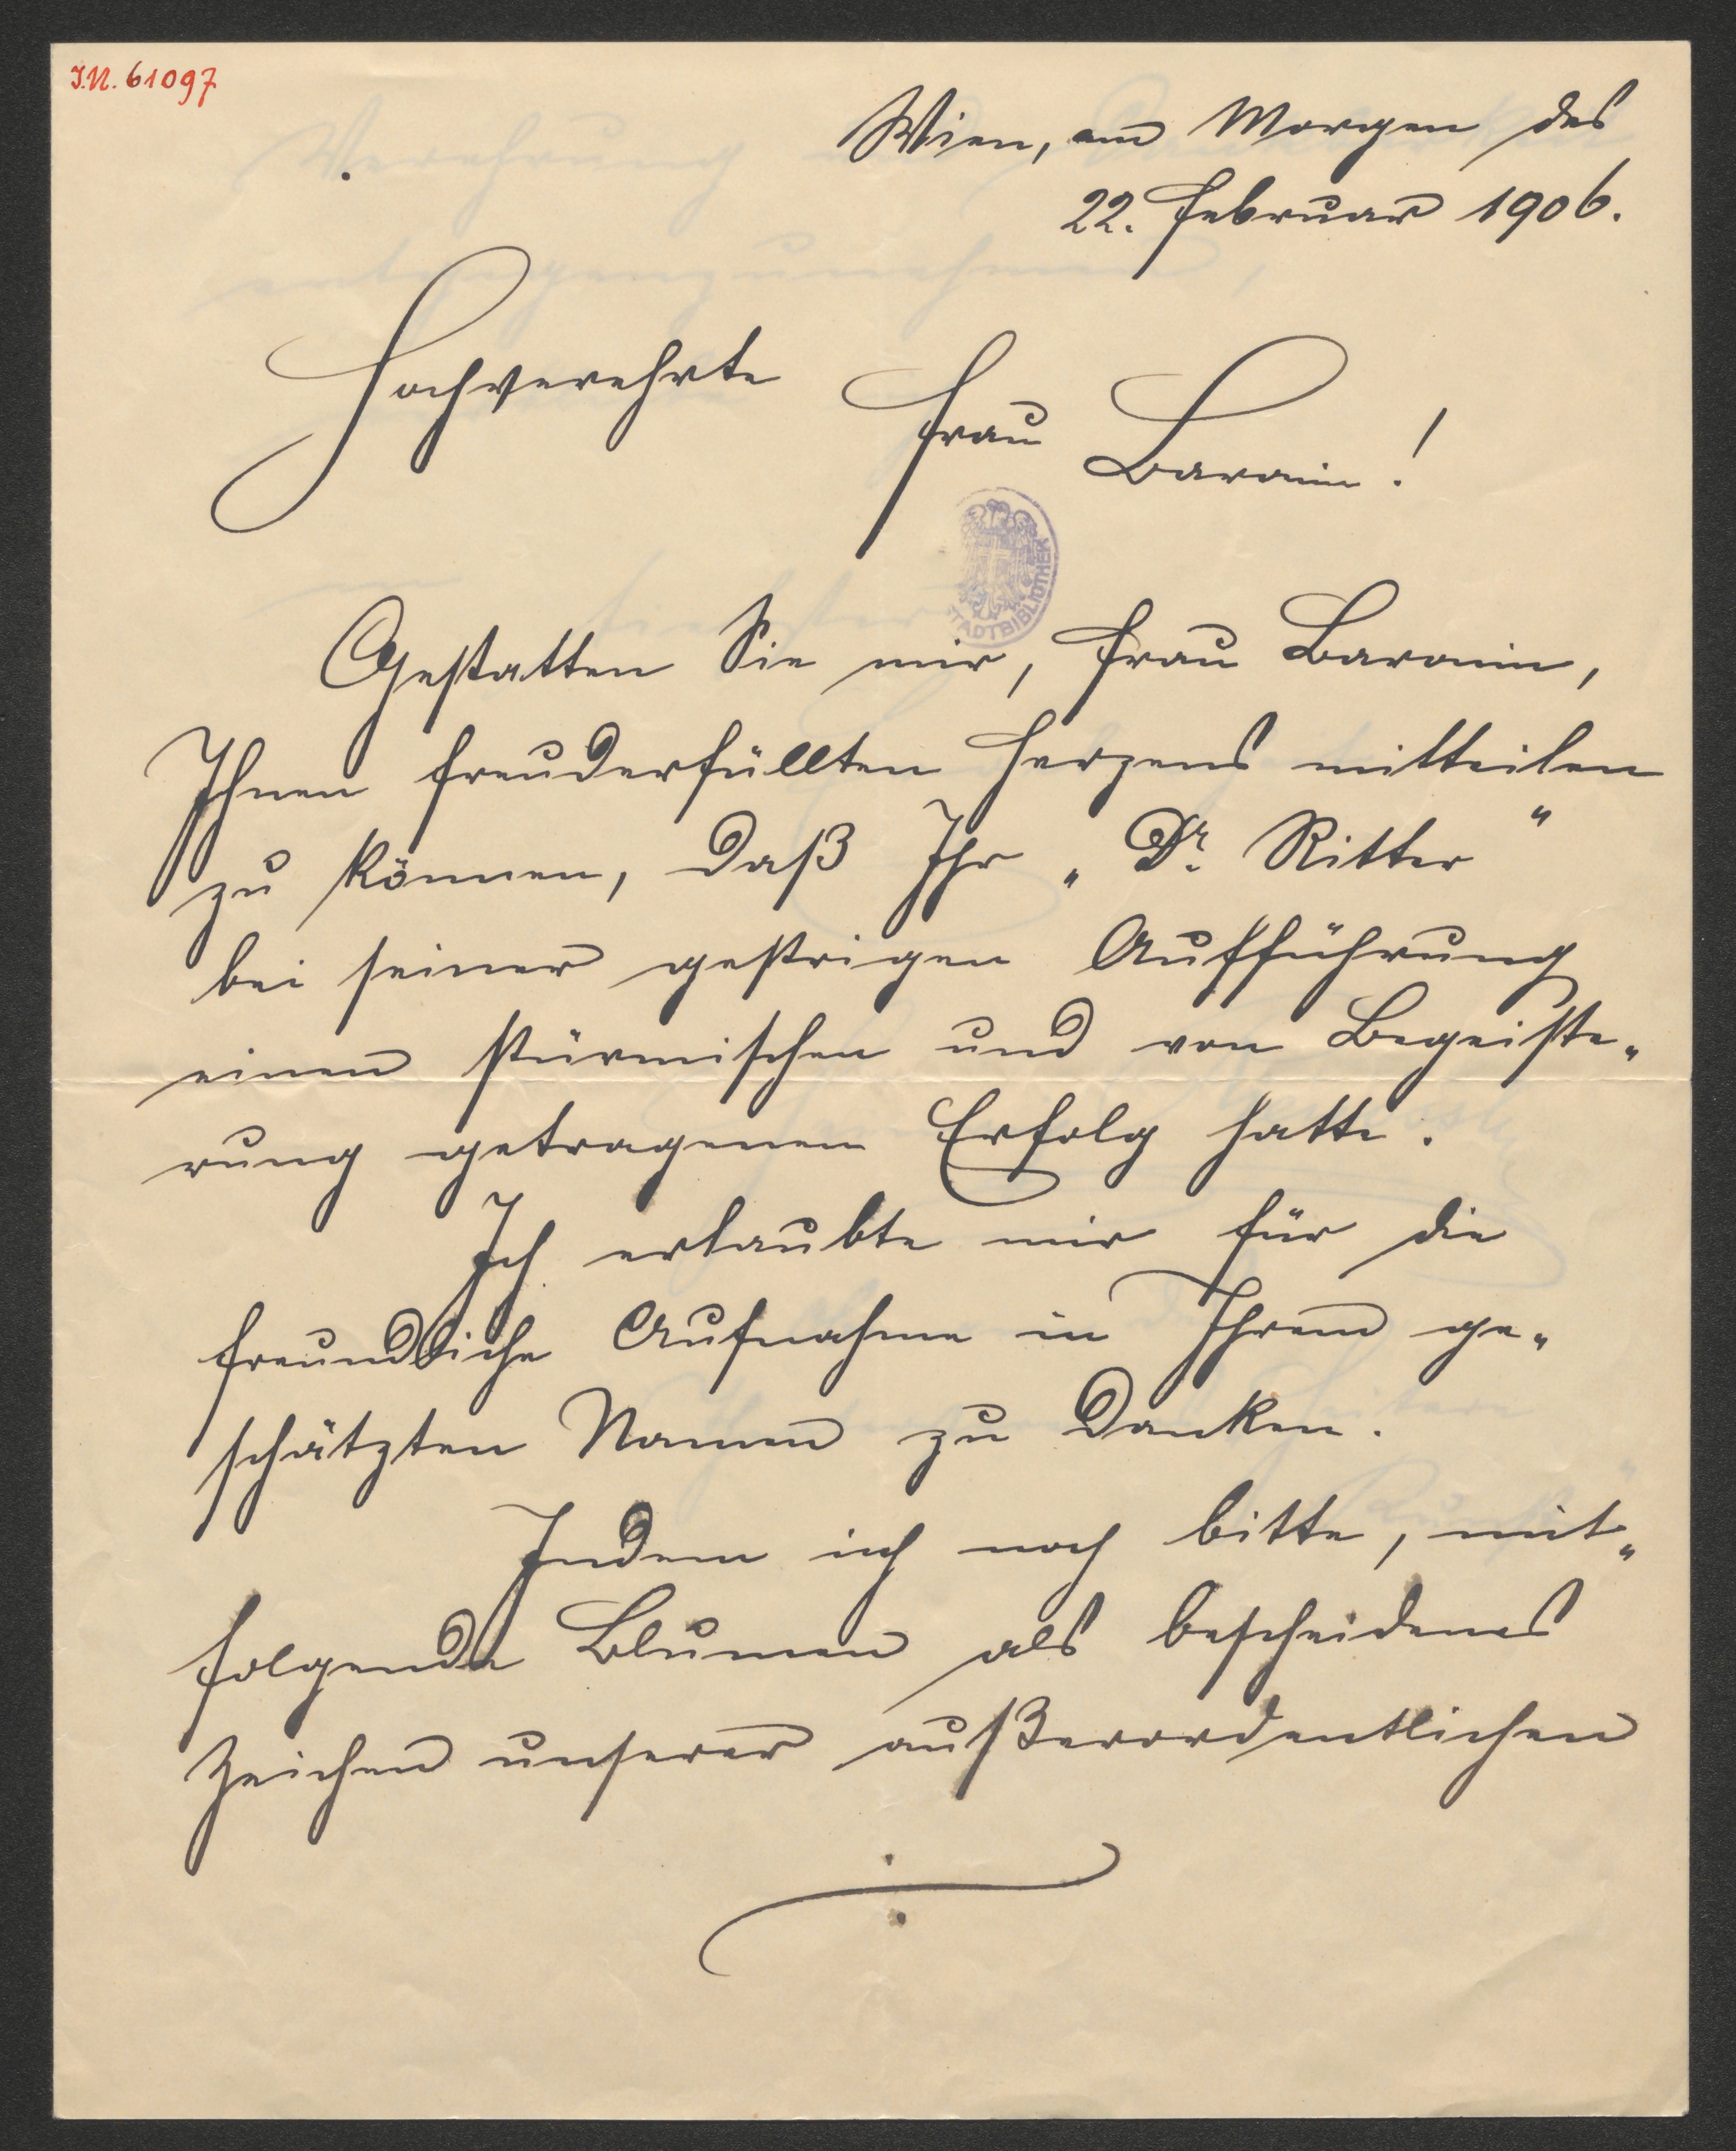 I.N. 61097
Wien, am Morgen des
22. Februar 1906.
Hochverehrte Frau Baronin!
STADTBIBLIOTHEK
Gestatten Sie mir, Frau Baronin,
Ihnen freuderfüllten Herzens mitteilen
zu können, daß Ihr „Dr. Ritter“
bei seiner gestrigen Aufführung
einen stürmischen und von Begeiste„
rung getragenen Erfolg hatte.
Ich erlaubte mir für die
freundliche Aufnahme in Ihrem ge„
schätzten Namen zu danken.
Indem ich noch bitte, mit„
folgende Blumen als bescheidenes
Zeichen unserer außerordentlichen